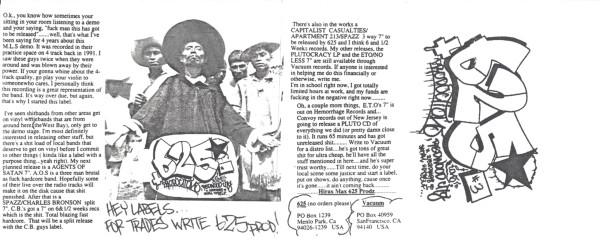 O.k., you know how sometimes your
sitting in your room listening to a demo
and your saying, "fuck man this has got
to be released".......well, that's what I've
been saying for 4 years about this
M.L.S demo. It was recorded in their
practice space on 4 track back in 1991. I
saw these guys twice when they were
around and was blown away by their
power. If your gonna whine about the 4-
track quality, go play your violin to
someone who cares, I personally think
this recording is a great representation of
the band. It's way over due, but again,
that's why I started this label.
I've seen shitbands from other areas get
on vinyl whilebands that are from
around here(theWest Bay), only get to
the demo stage. I'm most definitely
interested in releasing other stuff, but
there's a shit load of local bands that
deserve to get on vinyl before I commit
to other things ( kinda like a label with a
purpose thing...yeah right). My next
planned release is a AGENTS OF
SATAN 7". A.O.S is a three man brutal
as fuck hardcore band. Hopefully some
of their live over the radio tracks will
make it on the disk cause that shit
punished. After that is a
SPAZZ/CHARLES BRONSON split
7". C.B.'s got a 7" on 6&1/2 weeks recs
which is the shit. Total blazing fast
hardcore. That will be a split release
with the C.B. guys label.
625
PRODUCTIONS
HEY LABELS...
FOR TRADES WRITE 625 PROD!
There's also in the works a
CAPITALIST CASUALTIES/
APARTMENT 213/SPAZZ 3 way 7" to
be released by 625 and I think 6 and 1/2
Weeks records. My other releases, the
PLUTOCRACY LP and the ETO/NO
LESS 7" are still available through
Vacuum records. If anyone is interested
in helping me do this financially or
otherwise, write me.
I'm in school right now, I got totally
limited hours at work, and my funds are
fucking in the negative right now..........
Oh, a couple more things, E.T.O's 7" is
out on Hemorrhage Records and...
Convoy records out of New Jersey is
going to release a PLUTO CD of
everything we did (or pretty damn close
to it). It runs 65 minutes and has got
unreleased shit......... Write to Vacuum
for a distro list...he's got tons of great
shit for ultra cheap. he'll have all the
stuff mentioned in here...and he is a
super trust worthy......Till next time, do your
local scene some justice and start a label,
put on shows, do anything, cause once
it's gone.... it ain't coming back.....
Hirax Max 625 Prodz
625 (no orders please)
PO BOX 1239
Menlo Park, Ca
94026-1239 USA
Vacuum
PO BOX 40959
SanFrancisco, CA
94140 USA
625
PRODUCTIONS
#3